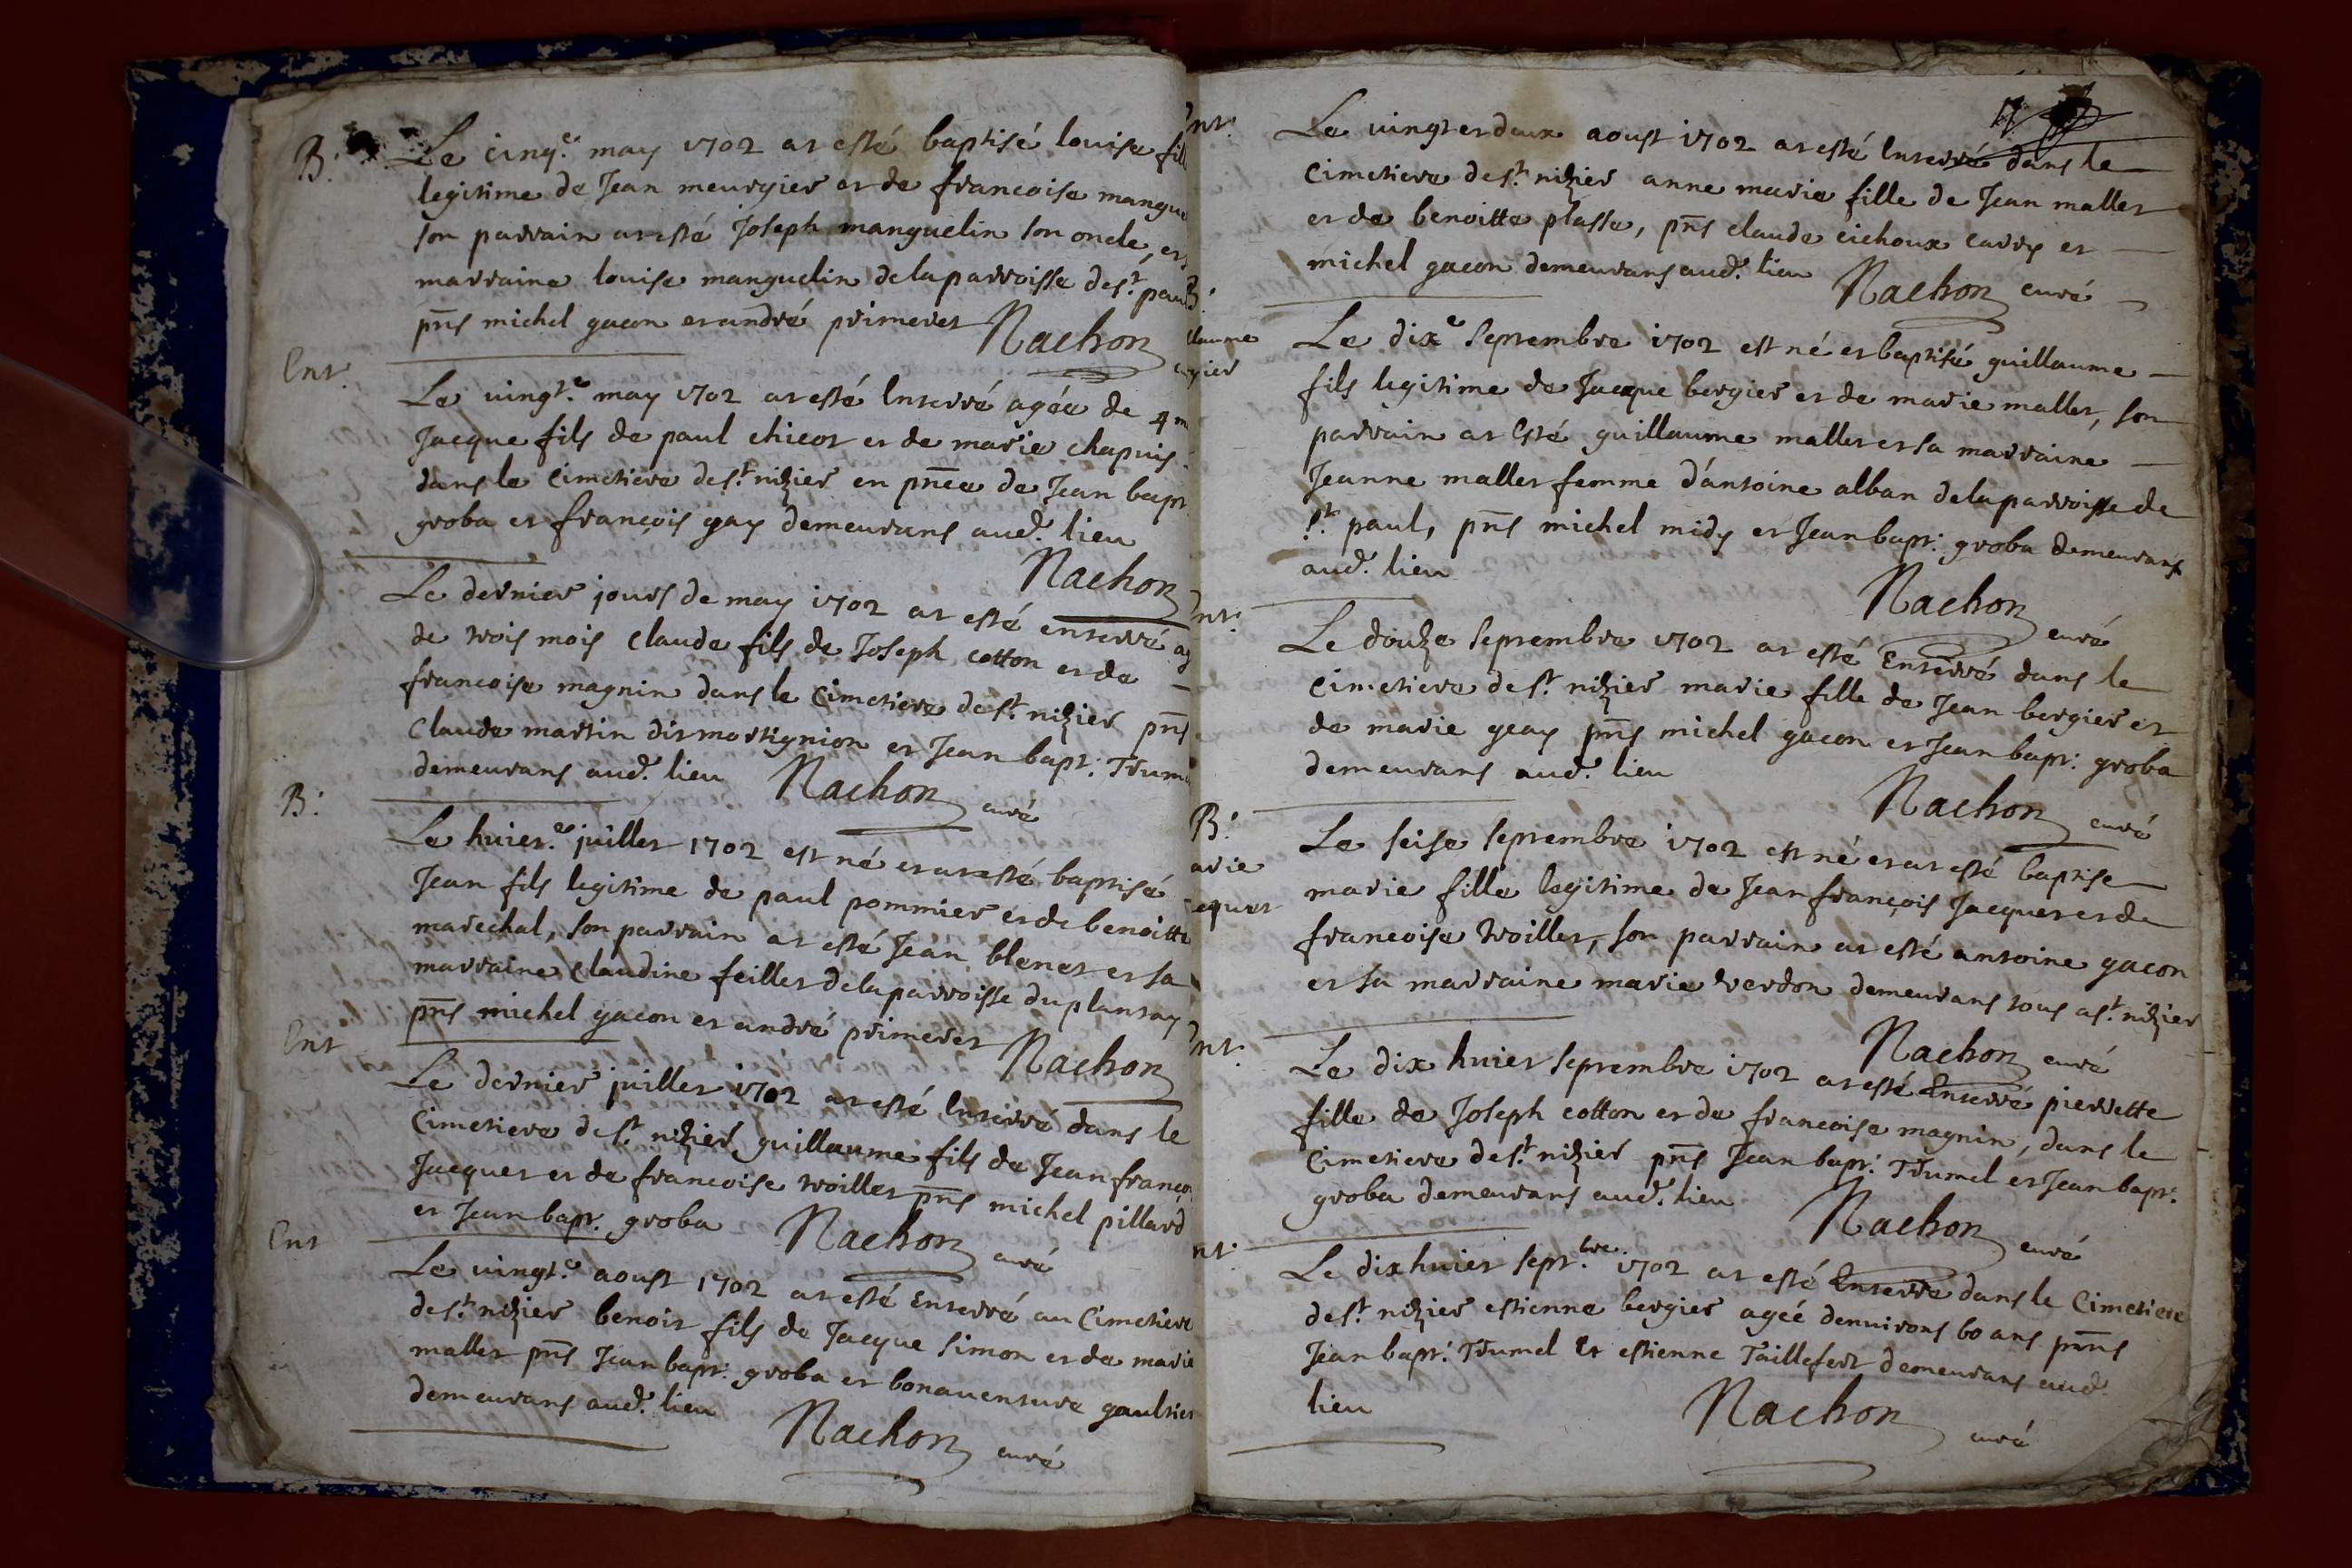 B.
Le cinq.e may 1702 at esté baptisé louise fill
legitime de Jean meurgier et de francoise mangue
son parrain at esté Joseph manguelin son oncle, et s
marraine louise manguelin de la parroisse de s.t paul
pñs michel gacon et andré primeret Nachon
Ent.
Le vingt.e may 1702 at esté Enterré agée de 4 m
Jacque fils de paul chicot et de marie chapuis
dans le Cimetiere de s.t nizier en pñce de Jean bapt
groba et françois gay demeurans aud. lieu
Nachon
Le dernier jours de may 1702 at esté enterré ag
de trois mois Claude fils de Joseph cotton et de
francoise magnin dans le Cimetiere de s.t nizier pñs
Claude martin dit mortignion et Jean bapt. Trum
demeurans aud. lieu Nachon curé
B.
Le huict.e juillet 1702 est né et at esté baptisé
Jean fils legitime de paul pommier et de benoitte
marechal, son parrain at esté Jean blenet et sa
marraine Claudine feillet de la parroisse du plantay
pñs michel gacon et andré primeret Nachon
Ent
Le dernier juillet 1702 at esté Enterré dans le
Cimetiere de s.t nizier guillaume fils de Jean franço
Jacquet et de francoise troillet pñs michel pillard
et Jean bapt. groba Nachon curé
Ent
Le vingt.e aoust 1702 at esté Enterré au Cimetiere
de s.t nizier benoit fils de Jacque Simon et de marie
mallet pñs Jean bapt. groba et bonaventure gaultier
demeurans aud. lieu Nachon curé
Ent.
Le vingt et deux aoust 1702 at esté Enterré dans le
Cimetiere de s.t nizier anne marie fille de Jean mallet
et de benoitte plasse, pñs claude cichoux carry et
michel gacon demeurans aud. lieu Nachon curé
B.
llaume
ergier
Le dix.e Septembre 1702 est né et baptisé guillaume
fils legitime de Jacque bergier et de marie mallet, son
parrain at Esté guillaume mallet et sa marraine
Jeanne mallet femme d'antoine alban de la parroisse de
s.t paul, pñs michel midy et Jean bapt. groba demeurans
aud. lieu Nachon curé
Ent.
Le douze Septembre 1702 at esté Enterré dans le
Cimetiere de s.t nizier marie fille de Jean bergier et
de marie geay pñs michel gacon et Jean bapt. groba
demeurans aud. lieu Nachon curé
B.
arie
acquet
Le seise Septembre 1702 est né et at esté baptise
marie fille legitime de Jean françois Jacquet et de
francoise troillet, son parrain at esté antoine gacon
et sa marraine marie verdon demeurans tous a s.t nizier
Nachon curé
Ent.
Le dix huict Septembre 1702 at esté Enterré pierrette
fille de Joseph cotton et de francoise magnin, dans le
Cimetiere de s.t nizier pñs Jean bapt. Trumel et Jean bapt.
groba demeurans aud. lieu Nachon curé
Ent.
Le dix huict sept.bre 1702 at esté Enterré dans le Cimetiere
de s.t nizier estienne bergier ageé denvirons 60 ans pñs
Jean bapt. Trumel Et estienne Taillefert demeurans aud.
lieu Nachon curé